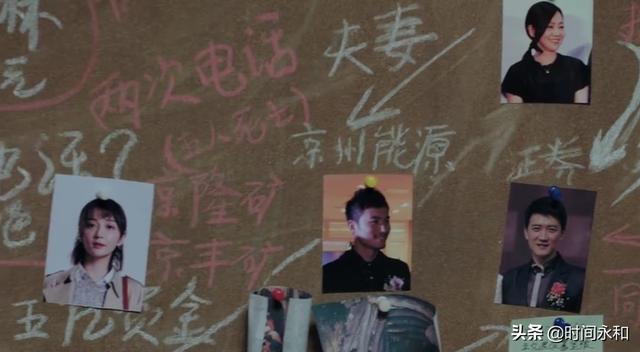 夫妻
两次电话
(五人死亡)
电话?
京州能源
证券
京隆矿
京丰矿
五亿资金
头条 @时间永和